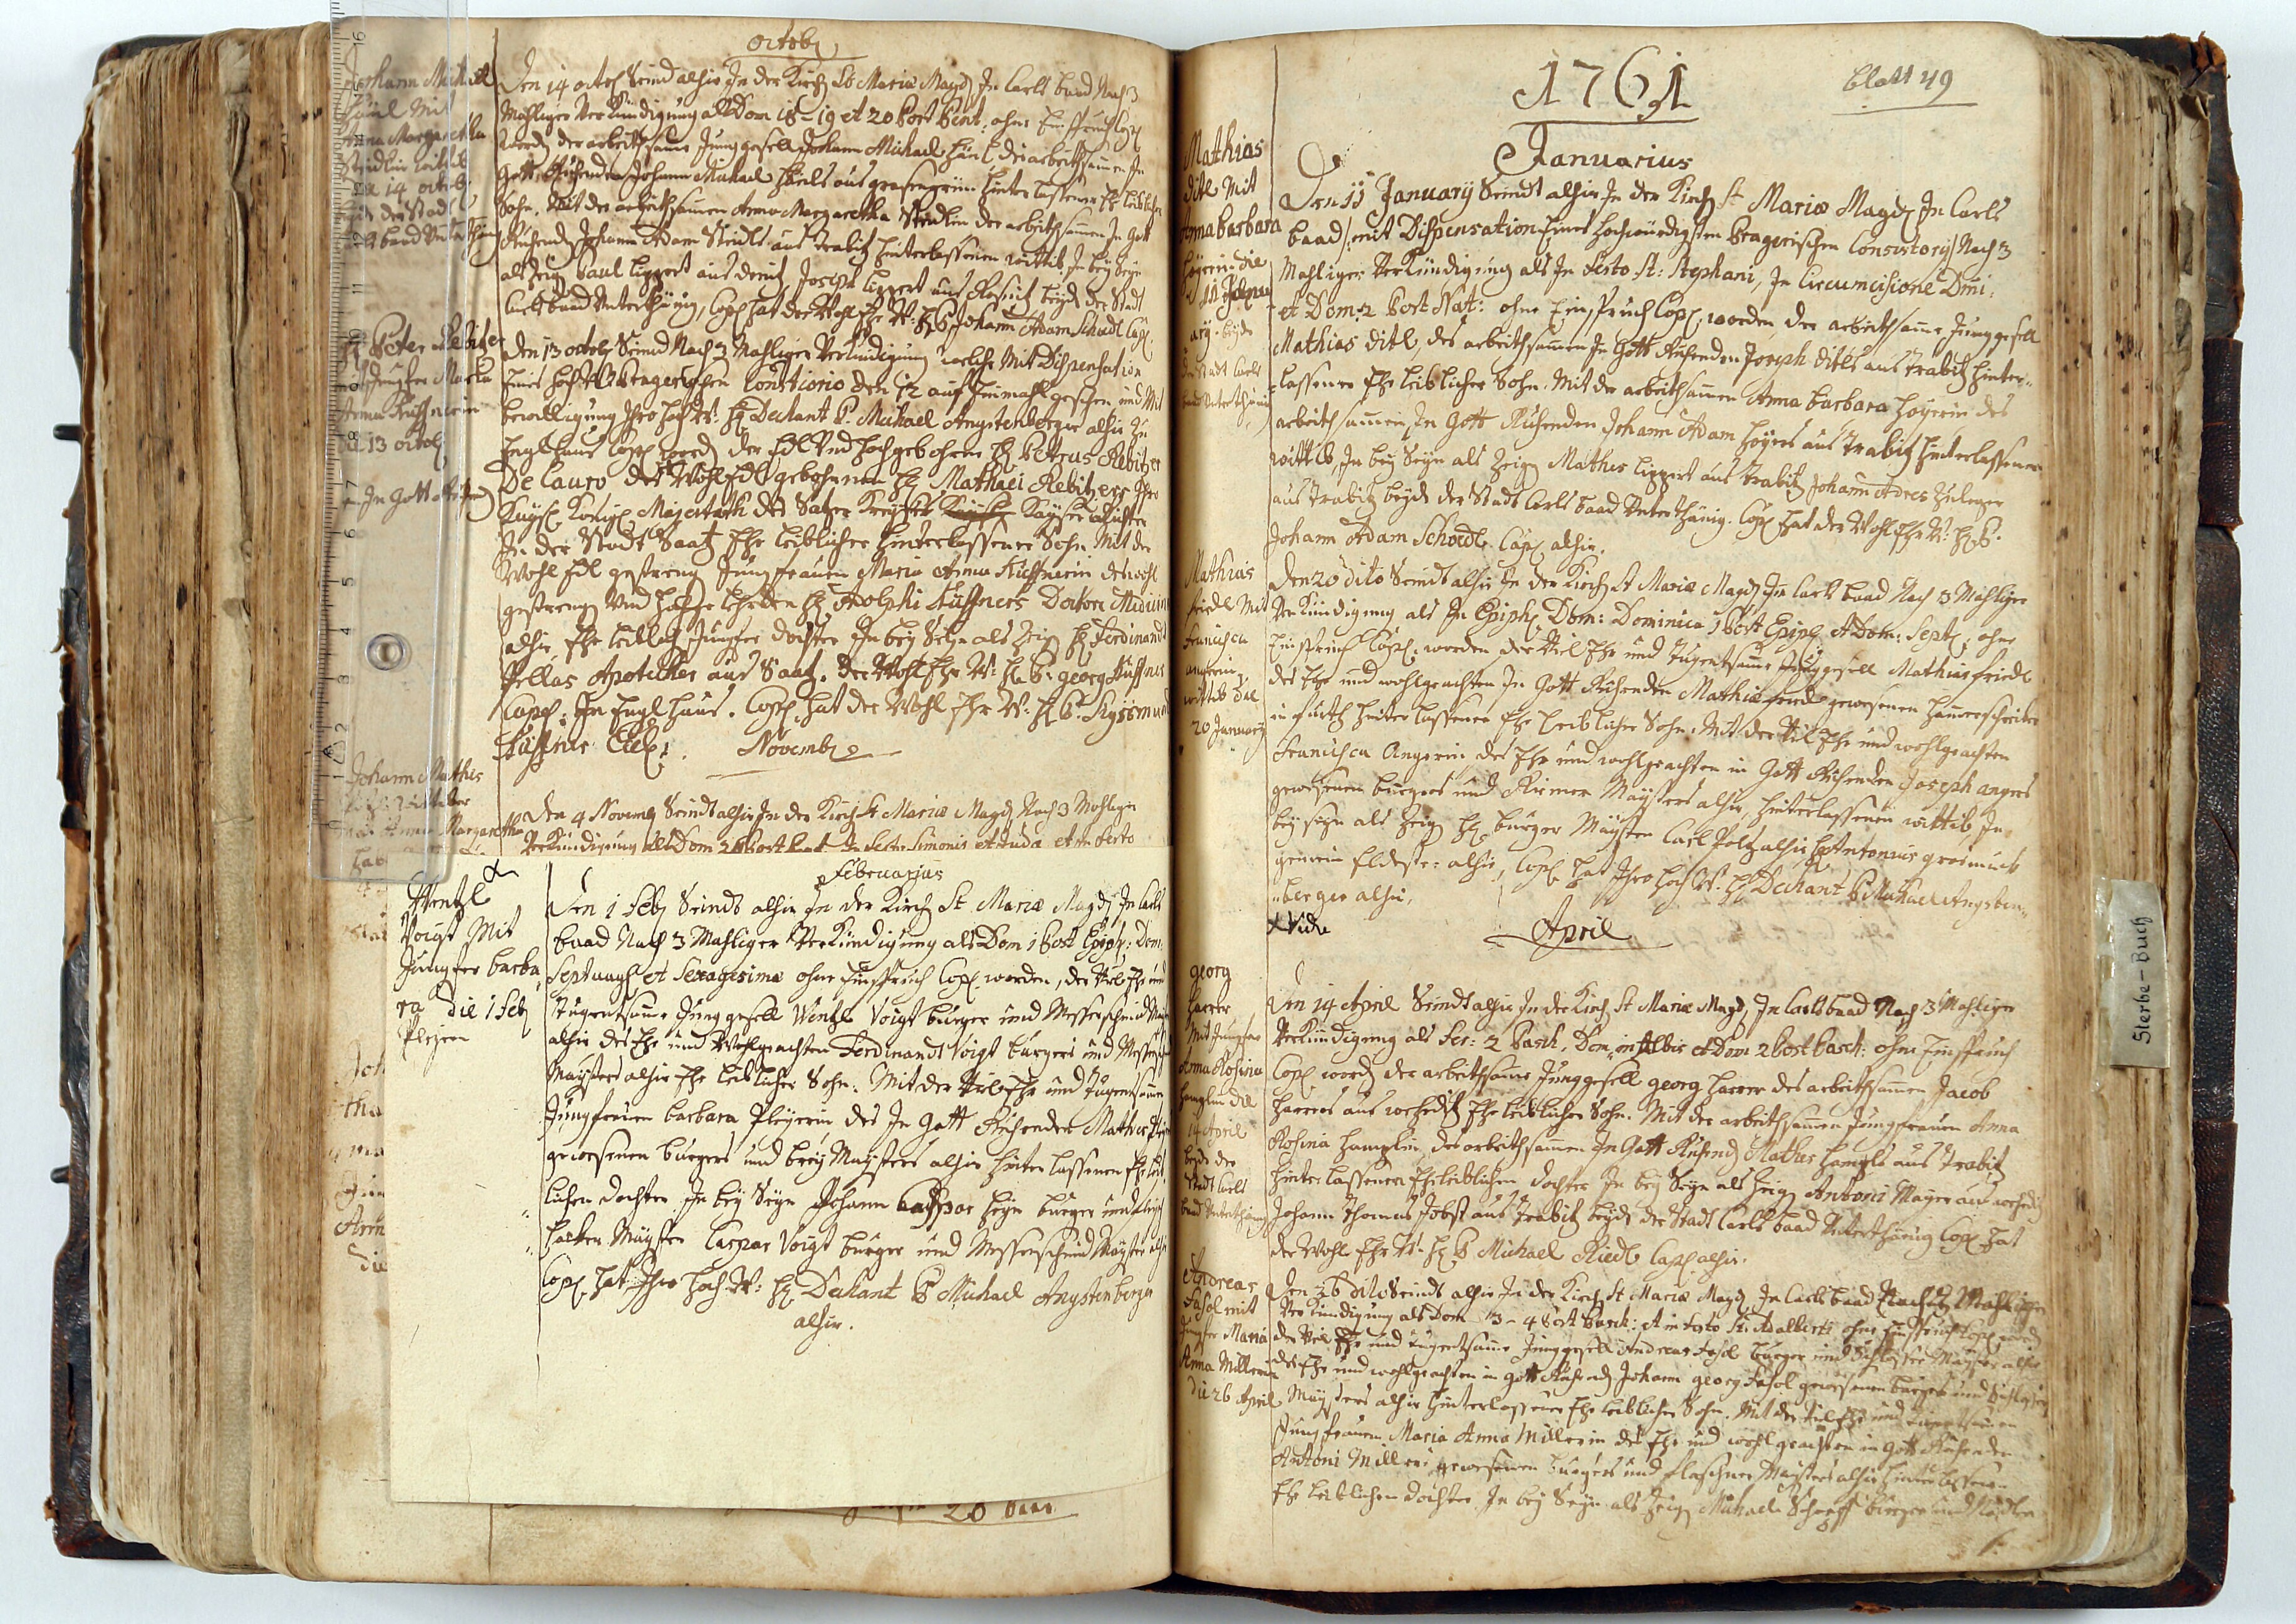 octob
Johann Michael
Mit
Anna Margaretha
die 14 octob
der Stadt
Carls baad Unterthänig
Den 14 octob Seind alhir In der Kirch St Mariæ Magd In Carls baad Nach 3
Mahliger Verkündigung als Dom 18 - 19 et 20 Post Pent: ohne Einspruch Cop
word der arbeithsame Junggesell Johann Michael Häul des arbeithsamen In
Gott Ruhenden Johann Michael Häuls aus grasengrün hinter lassener Ehe leiblicher
Sohn. Mit der arbeithsamen Anna Margaretha Steidlin des arbeithsamen In Gott
Ruhend Johann Adam Steidls aus trabitz hinterlassenen wittib, In bey Seyn
als Zeig Paul Lippert aus Joseph Lippert aus beyde der Stadt
Carls baad Unterthänig, Cop hat der Wohl Ehr W: H P Johann Adam Schedl Cap.
H Peter Rebitzer
Mit Jungfer Maria
Anna Küffnerin
die 13 octob
In Gott
Den 13 octob Seind Nach 3 Mahliger Verkündigung welche Mit Dispensation
Eines Hoch Pragerischen Consistorio den 12 auf Einmahl geschen und Mit
bewilligung Ihro Hoch W: H Dechant P. Michael Angstenberger alhir zu
Englhaus Cop word der Edl Und Hochgebohrne H Petrus Rebitzer
De Lauro des Wohl Edl gebohrnen H Mathæi Rebitzers Ihro
Kayß Königl Majestath des Satzer Kreyses Kayser Richter
In der Stadt Saatz Ehe leiblicher hinterlassener Sohn. Mit der
Wohl Edl gestreng Jungfrauen Maria Anna Küffnerin des wohl
gestreng Und Hoch gelehrten H Adolphi Küffners Doctore Medicin
alhir Ehe leiblich Jungfer dochter In bey Seyn als Zeig H Ferdinandt
Pellas Apotecker aus Saatz. der Wohl Ehr W: H P. georg Küffner
Cap. In Engl Haus. Cop hat der Wohl Ehr W. H P. Sygismund
Küffner
Novemb
Johann Mathis
Anna Margaretha
Den 4 Novemb Seindt alhir In der Kirch St Mariæ Magd Nach 3 Mahliger
Verkündigung als Dom 26 Post Pent In Festo Simonis et Juda et In Festo
Februarius
Wentzl
Voigt Mit
Jungfer barba
ra die 1 Feb
Pleyerin
Den 1 Feb Seindt alhir In der Kirch St Mariæ Magd In Carls
baad Nach 3 Mahliger Verkündigung als Dom 1 Post Epiph: Dom:
Septuag et Sexagesima ohne Einspruch Cop worden, der Vil Ehr und
Tugentsame Junggesell Wentzl Voigt burger und Messerschmid
alhir des Ehr und Wohlgeachten Ferdinandt Voigt burgers und
Maysters alhir Ehe leiblicher Sohn. Mit der Vil Ehr und Tugentsamen
Jungfrauen barbara Pleyerin des In Gott Ruhenden Mathes
gewesenen burgers und breyMaysters alhir hinter lassenen
lichen dochter. In bey Seyn Johann Casspar Heyn burger und
hacker Mayster Caspar Voigt burger und Messerschmid Mayster
Cop hat Ihro Hoch W: H Dechant P Michael Angstenberger
alhir.
20 Paar
1761
blatt 49
Januarius
Mathias
ditl Mit
Anna barbara
Hoyerin. die
11 Janu
ary. beyde
der Stadt Carls
baad Unterthänig
Den 11 January Seindt alhir In der Kirch St Mariæ Magd In Carls
baad, mit Dispensation Eines Hochwürdigsten Pragerischen Consistory, Nach 3
Mahliger Verkündigung als In Festo St: Stephani, In Circumcisione Dni,
et Dom: 2 Post Nat: ohne Einspruch Cop. worden der arbeithsame Junggesell
Mathias ditl, des arbeithsamen In Gott Ruhenden Joseph ditls aus trabitz hinter-
lassener Ehe leiblicher Sohn. Mit der arbeithsamen Anna barbara Hoyerin des
arbeithsamen, In Gott Ruhenden Johann Adam Hoyers aus trabitz hinterlassenen
wittib, In bey Seyn als Zeig Mathes Lippert aus trabitz Johann Adres Zuleger
aus trabitz beyde der Stadt Carls baad Unterthänig. Cop hat der Wohl Ehr W: H P.
Johann Adam Schedl. Cap alhir.
Mathias
friedl Mit
Francisca
angerin
wittib die
20 January
Den 20 dito Seindt alhir In der Kirch St Mariæ Magd In Carls baad Nach 3 Mahliger
Verkündigung als In Epiph Dom: Dominica 1 Post Epiph et Dom: Sept; ohne
Einspruch Cop. worden der Viel Ehr und Tugentsame Junggesell Mathias friedl
des Ehr und wohlgeachten In Gott Ruhenden Mathiæ friedl gewesenen hamerschreiber
in hinter lassener Ehe Leiblicher Sohn. Mit der Vil Ehr und wohlgeachten
Francisca Angerin des Ehr und wohlgeachten in Gott Ruhenden Joseph angers
gewesenen burgers und Riemer Maysters alhir, hinterlassenen wittib, In
bey seyn als Zeig H burger Mayster Carl Polz alhir H Antonius
gemein Eldester alhir, Cop hat Ihro Hoch W: H Dechant P Michael Angsten-
berger alhir,
x Vide
April
georg
harrer
Mit Jungfer
Anna Rosina
Hamplin die
14 April
beyde der
Stadt Carls
baad Unterthänig
Den 14 April Seindt alhir In der Kirch St Mariæ Magd, In Carls baad Nach 3 Mahliger
Verkündigung als Fer: 2 Pasch, Dom. in Albis et Dom 2 Post Pasch: ohne Einspruch
Cop word der arbeithsame Junggesell georg harrer des arbeithsamen Jacob
harrers aus Ehe leiblicher Sohn. Mit der arbeithsamen Jungfrauen Anna
Rosina Hamplin, des arbeithsamen In Gott Ruhend Mathes Hampls aus trabitz
hinter lassenen Eheleiblichen dochter In bey Seyn als Zeig Antoni Mayer aus
Johann Thomas Jobst aus trabitz beyde der Stadt Carls baad Unterthänig Cop hat
der Wohl Ehr W: H P Michael Riedl Cap alhir.
Andreas
Fasol mit
Jungfer Maria
Anna Millerin
die 26 April
Den 26 dito Seindt alhir In der Kirch St Mariæ Magd In Carls baad Nach 3 Mahliger
Verkündigung als Dom 3 - 4 Post Pasch: et in Festo St: Adalberti ohne Einspruch Cop word
der Viel Ehr und Tugentsame Junggesell Andreas Fasol burger und Schlosser Mayster alhir
des Ehr und wohlgeachten in gott Ruhend Johann georg Fasol gewesenen burgers und Schlosser
Maysters alhir hinterlassener Ehe leiblicher Sohn. Mit der Viel Ehr und Tugentsamen
Jungfrauen Maria Anna Millerin des Ehr und wohlgeachten in gott Ruhenden
Antoni Millers gewesenen burgers und flaschner Maysters alhir hinterlassenen
Ehe leiblichen dochter In bey Seyn als Zeig Michael Scharff burger und
Sterbe-Buch